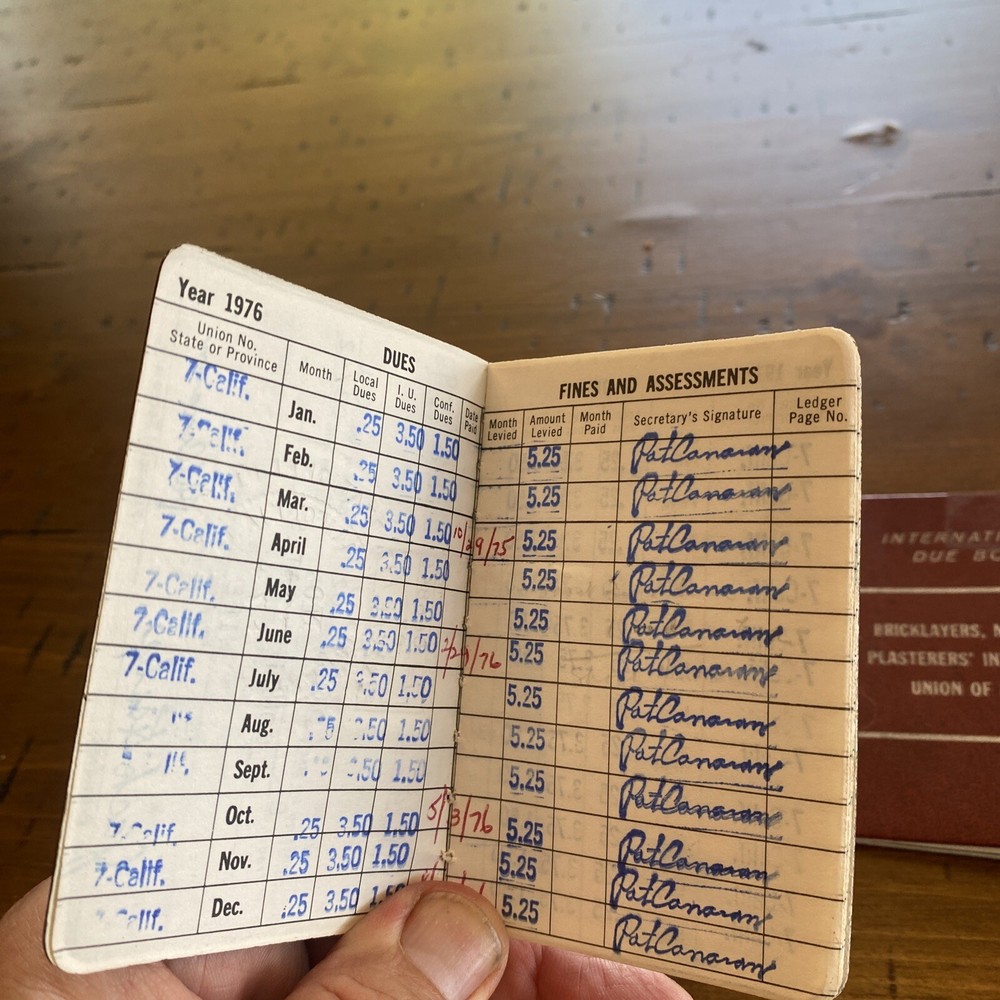 Year 1976
DUES
Union No. State or Province Month Local Dues I. U. Dues Conf. Dues Date Paid
7-Calif. Jan. .25 3.50 1.50
7-Calif. Feb. .25 3.50 1.50
7-Calif. Mar. .25 3.50 1.50 10/29/75
7-Calif. April .25 3.50 1.50
7-Calif. May .25 3.50 1.50
7-Calif. June .25 3.50 1.50
7-Calif. July .25 3.50 1.50
Aug. 1.50
Sept. 1.50
7-Calif Oct. .25 3.50 1.50 5/3/76
7-Calif. Nov. .25 3.50 1.50
Dec. .25 3.50
FINES AND ASSESSMENTS
Month Levied Amount Levied Month Paid Secretary's Signature Ledger Page No.
5.25 Pat Canavan
5.25 Pat Canavan
5.25 Pat Canavan
5.25 Pat Canavan
5.25 Pat Canavan
5.25 Pat Canavan
5.25 Pat Canavan
5.25 Pat Canavan
5.25 Pat Canavan
5.25 Pat Canavan
5.25 Pat Canavan
5.25 Pat Canavan
INTERNATI
DUE BO
BRICKLAYERS, M
PLASTERERS' IN
UNION OF